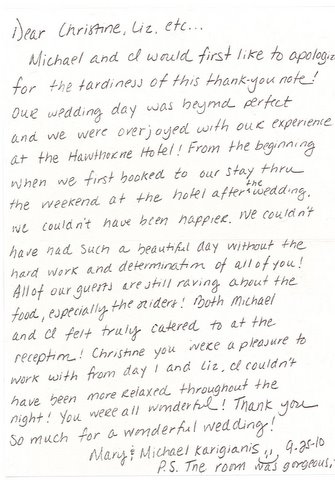 Dear Christine, Liz, etc...
Michael and I would first like to apologiz
for the tardiness of this thank-you note!
Our wedding day was beyond perfect
and we were overjoyed with our experience
at the Hawthorne Hotel! From the beginning
when we first booked to our stay thru
the weekend at the hotel after the wedding.
We couldn't have been happier. We couldn't
have had such a beautiful day without the
hard work and determination of all of you!
All of our guests are still raving about the
food, especially the sliders! Both Michael
and I felt truly catered to at the
reception! Christine you were a pleasure to
work with from day 1 and Liz, I couldn't
have been more relaxed throughout the
night! You were all wonderful! Thank you
so much for a wonderful wedding!
Mary & Michael Karigianis 9-25-10
P.S. The room was gorgeous!